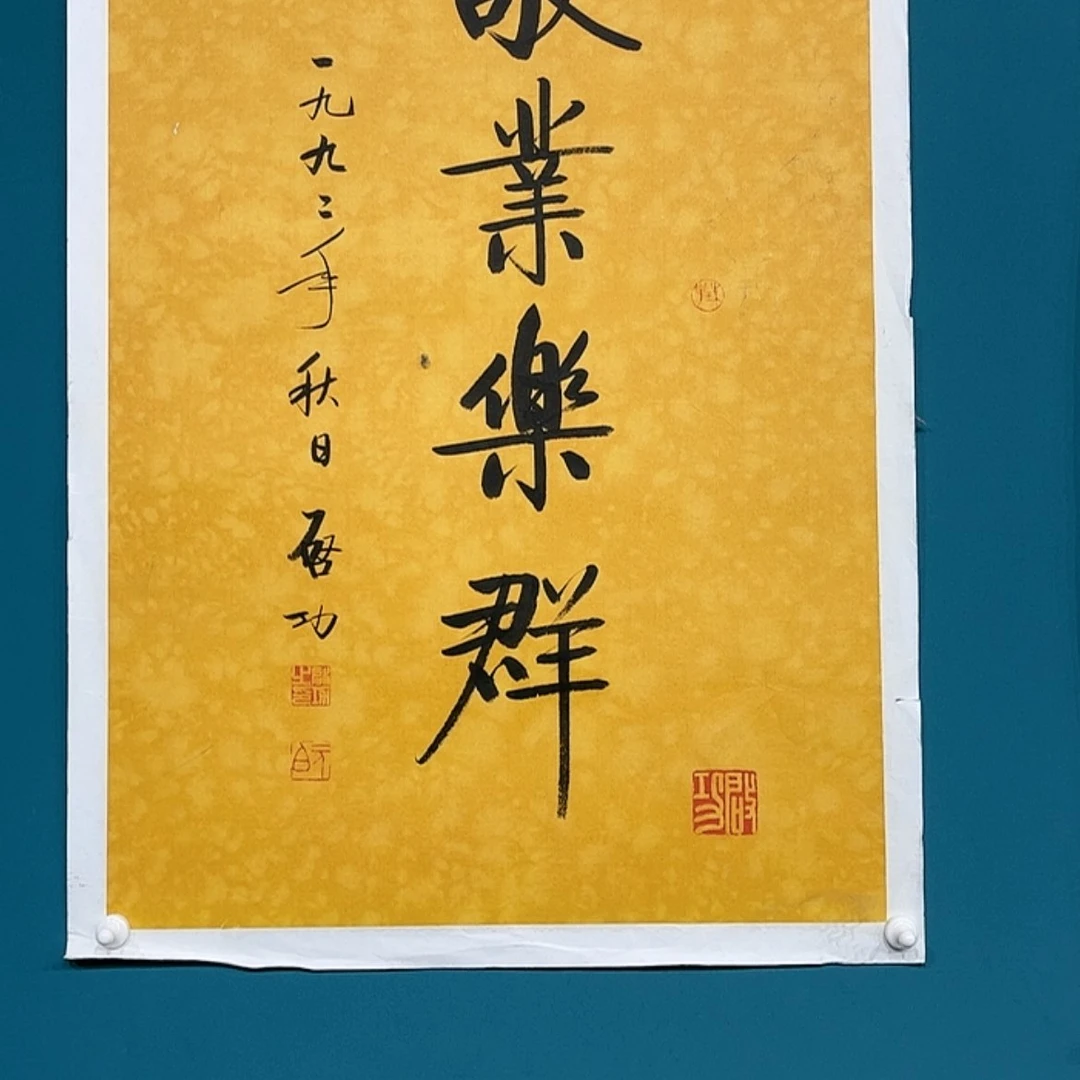 敬業樂群
一九九二年秋日啓功